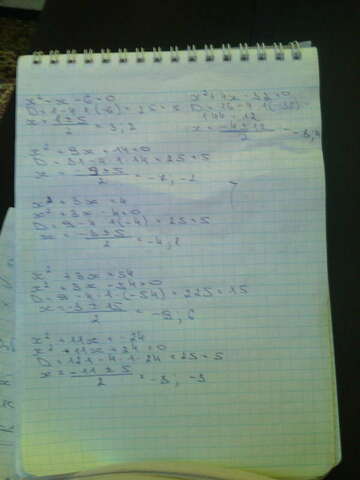 x² - x - 6 = 0
D = 1 - 4 · 1 · (-6) = 25 = 5
x = 1 ± 5 / 2 = 3, 2
x² + 4x - 32 = 0
D = 16 - 4 · 1 (-32) =
144 = 12
x = -4 ± 12 / 2 = -8, 4
x² + 9x + 14 = 0
D = 81 - 4 · 1 · 14 = 25 = 5
x = 9 ± 5 / 2 = -7, -2
x² + 3x = 4
x² + 3x - 4 = 0
D = 9 - 4 · 1 (-4) = 25 = 5
x = -3 ± 5 / 2 = -4, 1
x² + 3x = 54
x² + 3x - 54 = 0
D = 9 - 4 · 1 · (-54) = 225 = 15
x = -3 ± 15 / 2 = -9, 6
x² + 11x = -24
x² + 11x + 24 = 0
D = 121 - 4 · 1 · 24 = 25 = 5
x = -11 ± 5 / 2 = -8; -3